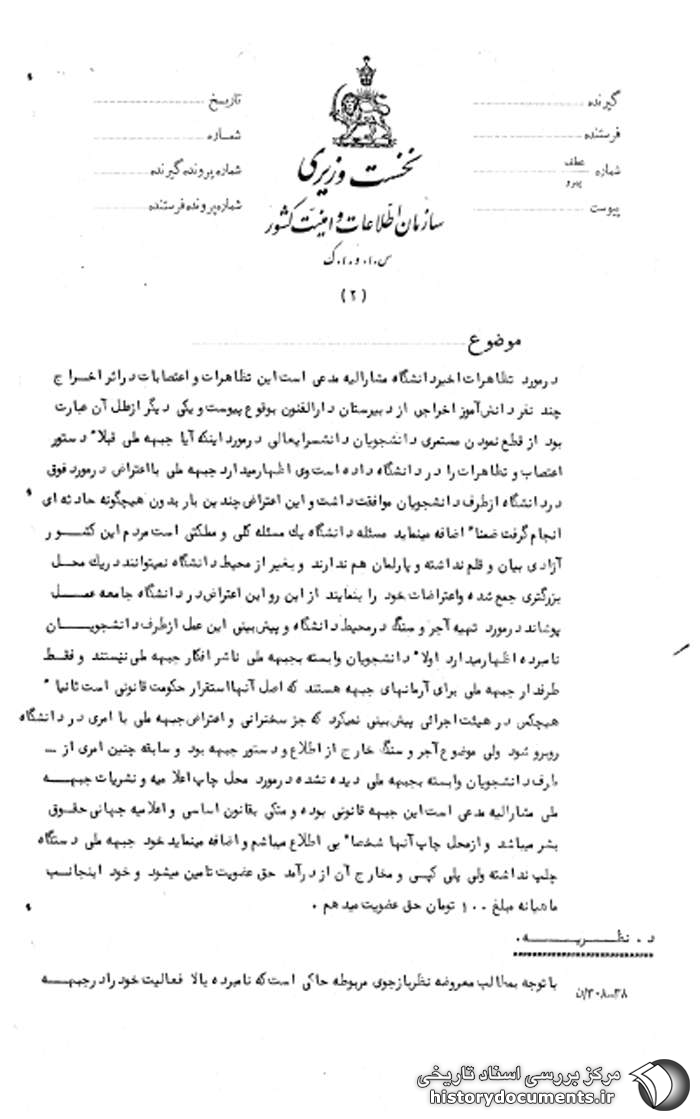 گیرنده
فرستنده
شماره عطف
پیرو
پیوست
نخست وزیری
سازمان اطلاعات و امنیت کشور
س.ا.و.ا.ک
(۲)
تاریخ
شماره
شماره پرونده گیرنده
شماره پرونده فرستنده
موضوع
در مورد تظاهرات اخیر دانشگاه مشارالیه مدعی است این تظاهرات و اعتصابات در اثر اخراج
چند نفر دانش‌آموز اخراجی از دبیرستان دارالفنون بوقوع پیوست و یکی دیگر از علل آن عبارت
بود از قطع نمودن مستمری دانشجویان دانشسرایعالی در مورد اینکه آیا جبهه ملی قبلا" دستور
اعتصاب و تظاهرات را در دانشگاه داده است وی اظهار میدارد جبهه ملی با اعتراض در مورد فوق
در دانشگاه از طرف دانشجویان موافقت داشت و این اعتراض چندین بار بدون هیچگونه حادثه ای
انجام گرفت ضمنا" اضافه مینماید مسئله دانشگاه یک مسئله کلی و مملکتی است مردم این کشور
آزادی بیان و قلم نداشته و پارلمان هم ندارند و بغیر از محیط دانشگاه نمیتوانند در یک محل
بزرگتری جمع شده و اعتراضات خود را بنمایند از این رو این اعتراض در دانشگاه جامعه عمل
پوشاند در مورد تهیه آجر و سنگ در محیط دانشگاه و پیش‌بینی این عمل از طرف دانشجویان
نامبرده اظهار میدارد اولا" دانشجویان وابسته بجبهه ملی ناشر افکار جبهه ملی نیستند و فقط
طرفدار جبهه ملی برای آرمانهای جبهه هستند که اصل آنها استقرار حکومت قانونی است ثانیا"
هیچکس در هیئت اجرائی پیش‌بینی نمیکرد که جز سخنرانی و اعتراض جبهه ملی با امری در دانشگاه
روبرو شود ولی موضوع آجر و سنگ خارج از اطلاع و دستور جبهه بود و سابقه چنین امری از
طرف دانشجویان وابسته بجبهه ملی دیده نشده در مورد محل چاپ اعلامیه و نشریات جبهه
ملی مشارالیه مدعی است این جبهه قانونی بوده و متکی بقانون اساسی و اعلامیه جهانی حقوق
بشر میباشد و از محل چاپ آنها شخصا" بی اطلاع میباشم و اضافه مینماید خود جبهه ملی دستگاه
چاپ نداشته ولی پلی کپی و مخارج آن از درآمد حق عضویت تامین میشود و خود اینجانب
ماهیانه مبلغ ۱۰۰ تومان حق عضویت میدهم .
د . نظریه .
با توجه بمطالب معروضه نظر بازجوی مربوطه حاکی است که نامبرده بالا فعالیت خود را در جبهه
مرکز بررسی اسناد تاریخی
historydocuments.ir